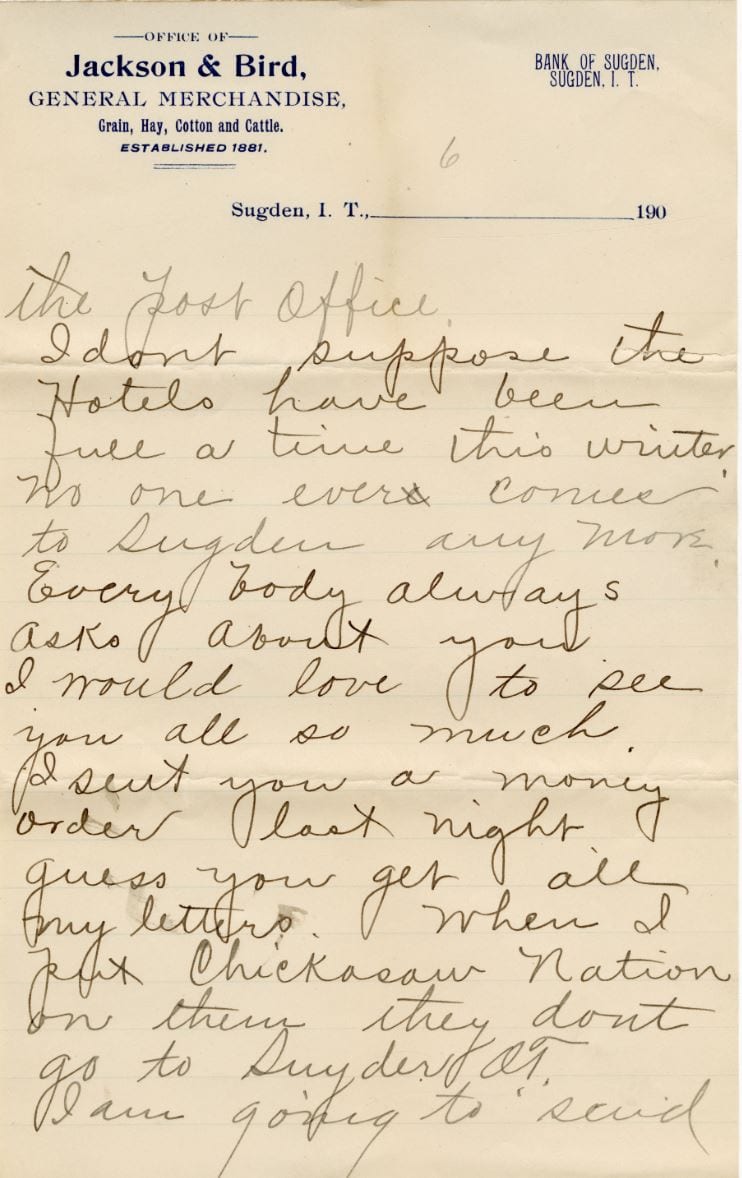 OFFICE OF
Jackson & Bird,
GENERAL MERCHANDISE,
Grain, Hay, Cotton and Cattle.
ESTABLISHED 1881.
BANK OF SUGDEN,
SUGDEN, I. T.
6
Sugden, I. T., 190
the Post Office.
I dont suppose the
Hotels have been
full a time this winter.
No one ever comes
to Sugden any more.
Every body always
asks about you
I would love to see
you all so much.
I sent you a money
order last night
guess you get all
my letters. When I
put Chickasaw Nation
on them they dont
go to Snyder OT.
I am going to send